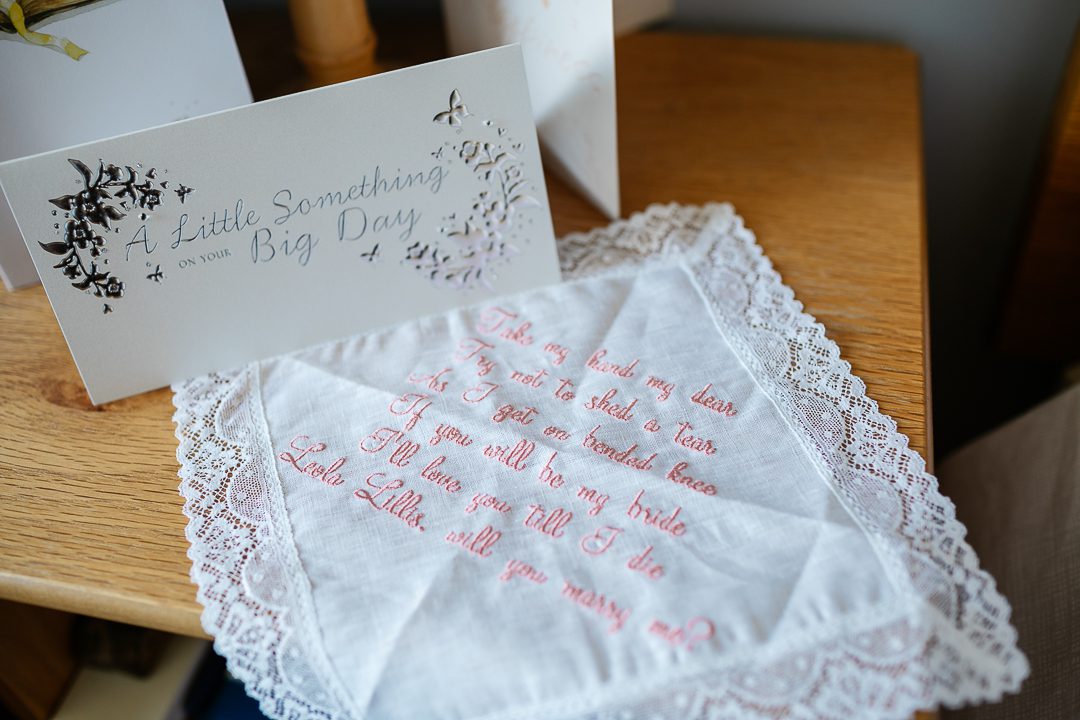 A Little Something
ON YOUR Big Day
Take my hand my dear
Try not to shed a tear
As I get on bended knee
If you will be my bride
I'll love you till I die
Leola Lillis, will you marry me?